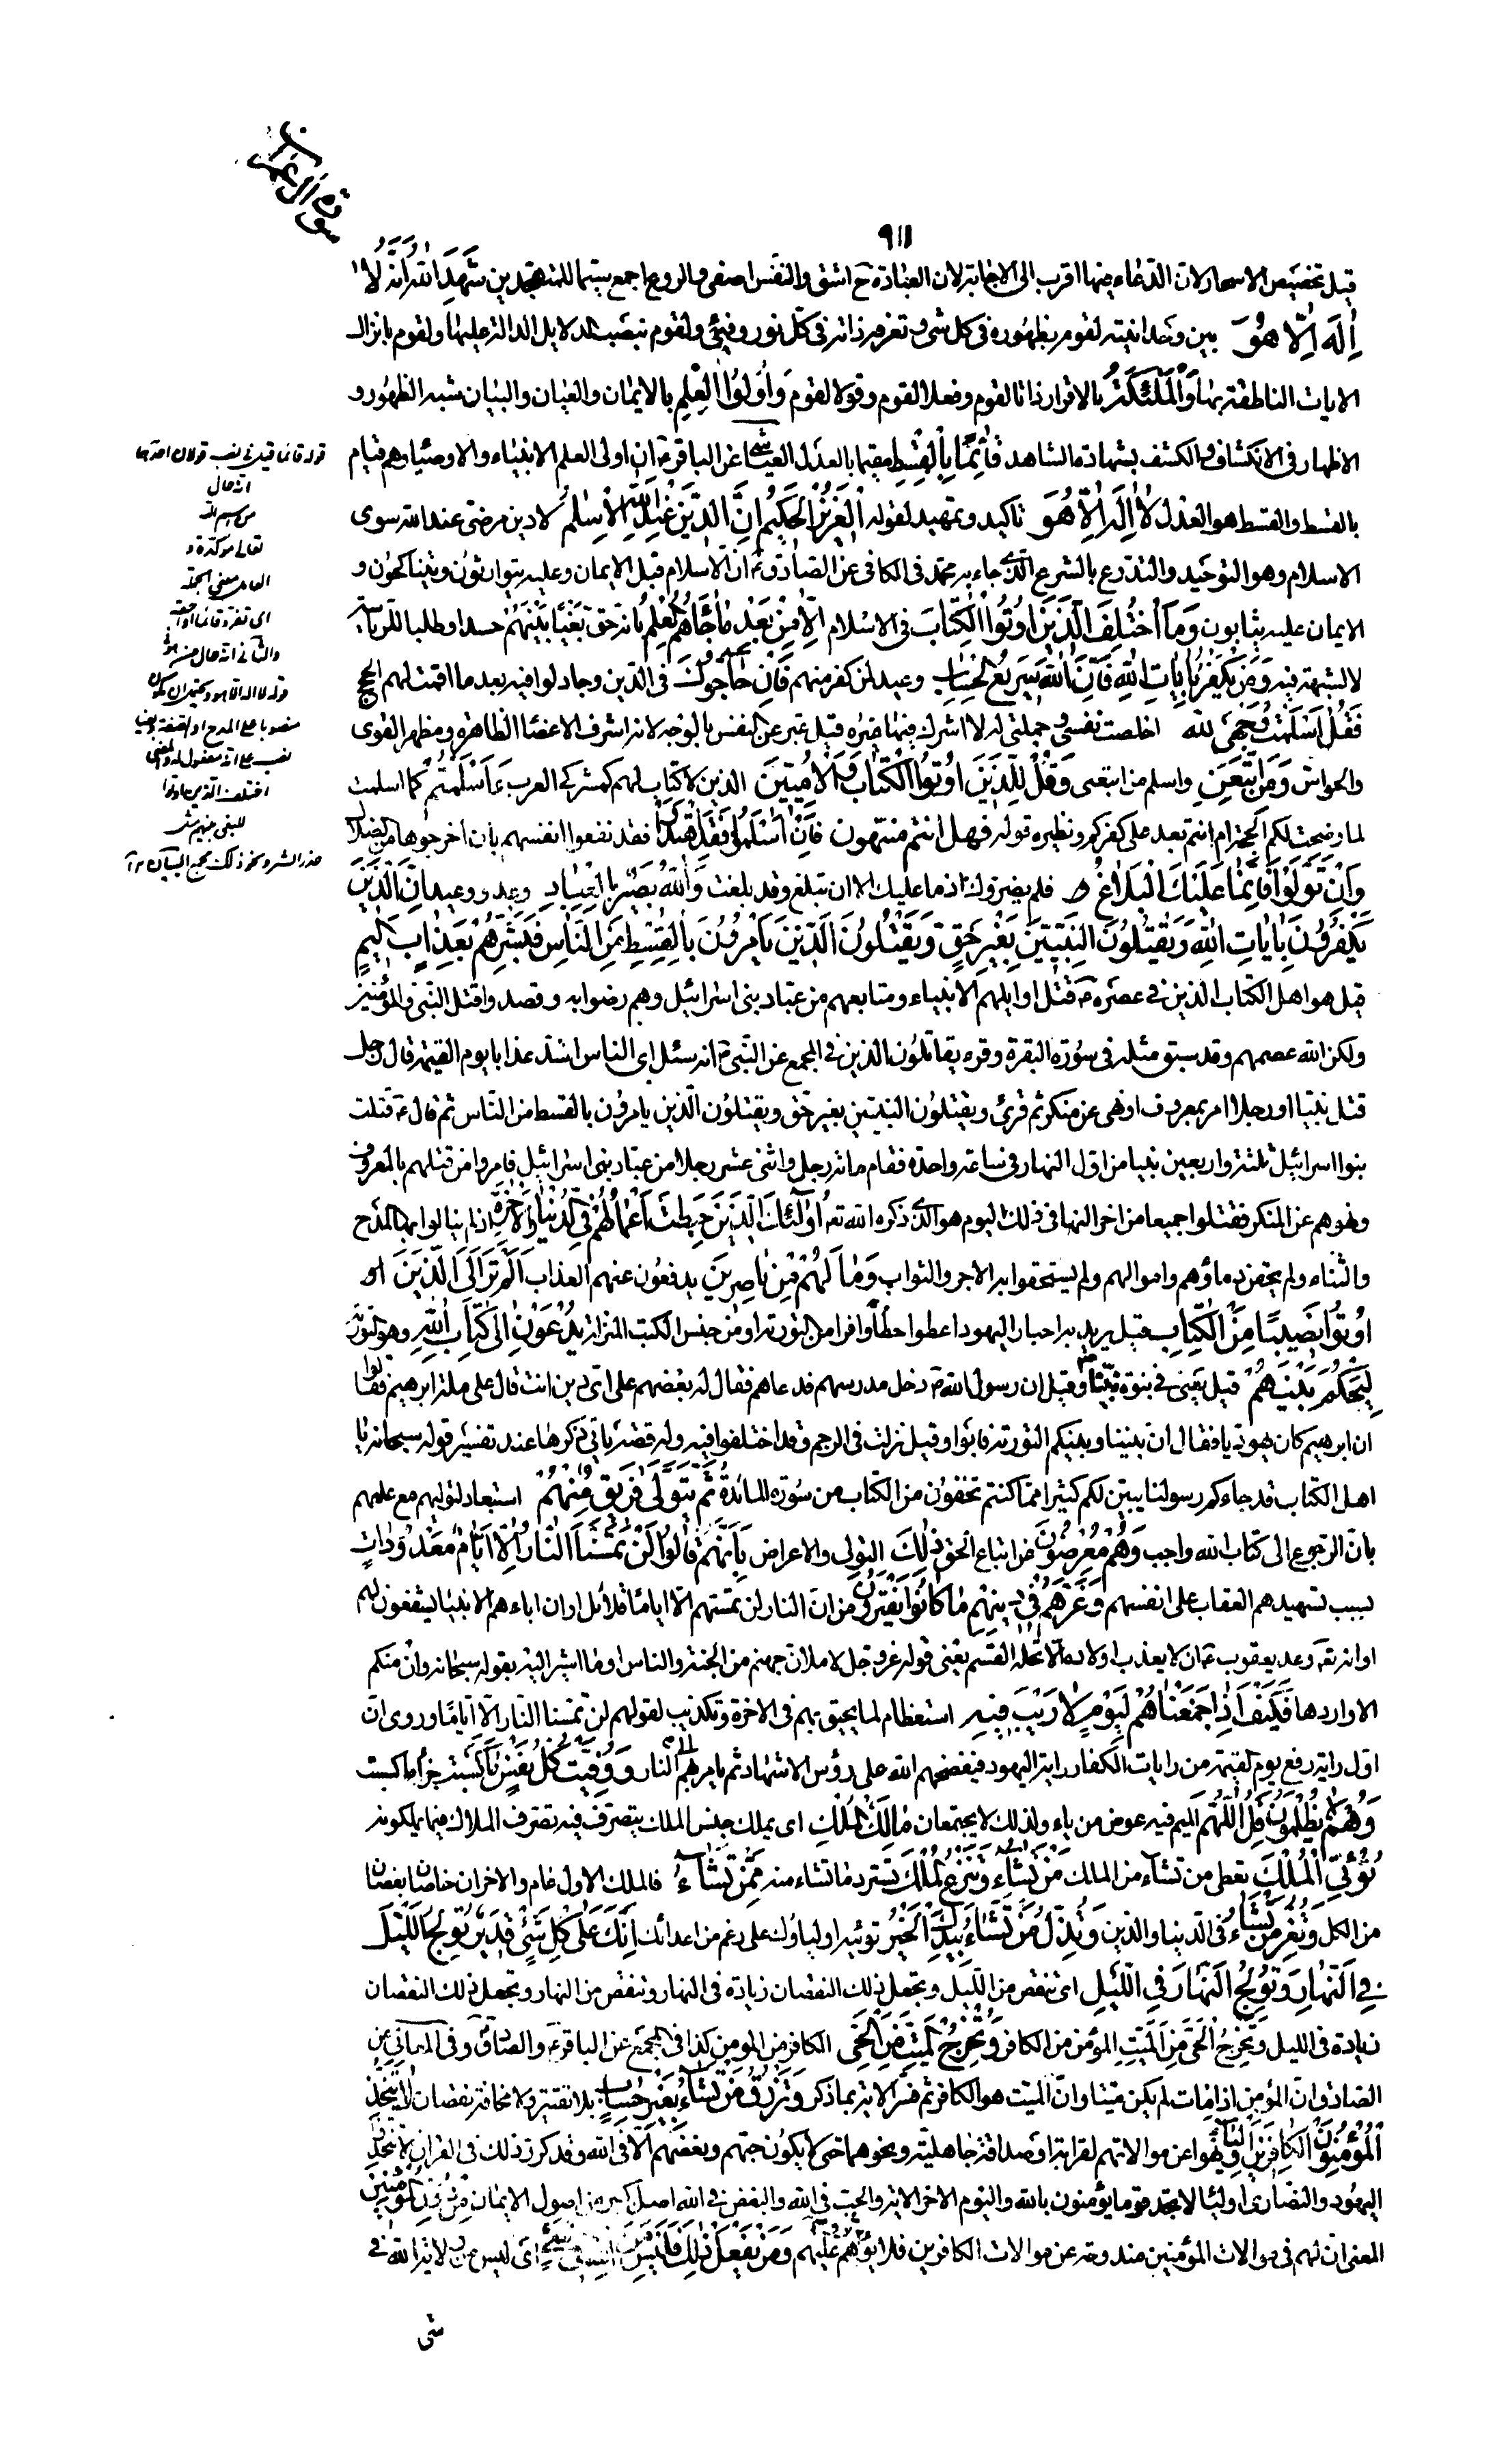 سورة آل عمران
٩١١
قيل تخصيص الاسحار لان الدعاء فيها اقرب الى الاجابة لان العبادة ح اشق والنفس اصفى والروع اجمع سيما للمتهجدين شَهِدَ اللهُ اَنَّهُ لا
اِلَهَ اِلّا هُوَ بين وحدانيته لقوم بظهوره في كل شئ وتعرفه ذاته في كل نور وفيئ ولقوم بنصب الدلايل الدالة عليها ولقوم بانزال
الايات الناطقة بها وَالْمَلئكَةُ بالاقرار ذاتا لقوم وفعلا لقوم وقولا لقوم وَاُولُوا الْعِلْمِ بالايمان والعيان والبيان شبه الظهور و
الاظهار في الانكشاف والكشف بشهادة الشاهد قائِمًا بِالْقِسْطِ مقيما بالعدل العياشي عن الباقر ع ان اولى العلم الانبياء والاوصياء وهم قيام
بالقسط والقسط هو العدل لا اِلَهَ اِلّا هُوَ تاكيد وتمهيد لقوله الْعَزيزُ الْحَكيمُ اِنَّ الدّينَ عِنْدَ اللهِ الْاِسْلامُ لا دين مرضى عند الله سوى
الاسلام وهو التوحيد والتدرع بالشرع الذي جاء به محمد في الكافي عن الصادق ع ان الاسلام قبل الايمان وعليه يتوارثون ويتناكحون و
الايمان عليه يثابون وَمَا اخْتَلَفَ الَّذينَ اُوتُوا الْكِتابَ في الاسلام اِلّا مِنْ بَعْدِ ما جاءَهُمُ الْعِلْمُ بانه حق بَغْيًا بَيْنَهُمْ حسدا وطلبا للرياسة
لا لشبهة فيه وَمَنْ يَكْفُرْ بِاياتِ اللهِ فَاِنَّ اللهَ سَريعُ الْحِسابِ وعيد لمن كفر منهم فَاِنْ حاجُّوكَ في الدين وجادلوا فيه بعد ما اقمت لهم الحجج
فَقُلْ اَسْلَمْتُ وَجْهِيَ لله اخلصت نفسي وجملتى له لا اشرك فيها غيره قيل عبر عن النفس بالوجه لانه اشرف الاعضاء الظاهرة ومظهر القوى
والحواس وَمَنِ اتَّبَعَنِ واسلم من اتبعنى وَقُلْ لِلَّذينَ اُوتُوا الْكِتابَ وَالْاُمِّيّينَ الذين لا كتاب لهم كمشركى العرب ءَاَسْلَمْتُمْ كما اسلمت
لما وضحت لكم الحجة ام انتم بعد على كفركم ونظيره قوله فهل انتم منتهون فَاِنْ اَسْلَمُوا فَقَدِ اهْتَدَوْا فقد نفعوا انفسهم بان اخرجوها من الضلال
وَاِنْ تَوَلَّوْا فَاِنَّما عَلَيْكَ الْبَلاغُ فلم يضروك اذ ما عليك الا ان تبلغ وقد بلغت وَاللهُ بَصيرٌ بِالْعِبادِ وعد ووعيد اِنَّ الَّذينَ
يَكْفُرُونَ بِاياتِ اللهِ وَيَقْتُلُونَ النَّبِيّينَ بِغَيْرِ حَقٍّ وَيَقْتُلُونَ الَّذينَ يَاْمُرُونَ بِالْقِسْطِ مِنَ النّاسِ فَبَشِّرْهُمْ بِعَذابٍ اَليمٍ
قيل هو اهل الكتاب الذين في عصره ص قتل اوايلهم الانبياء ومتابعهم من عباد بنى اسرائيل وهم رضوا به وقصدوا قتل النبي والمؤمنين
ولكن الله عصمهم وقد سبق مثله في سورة البقرة وقرء يقاتلون الذين في المجمع عن النبي ص انه سئل اي الناس اشد عذابا يوم القيمة قال رجل
قتل نبيا او رجلا امر بمعروف او نهى عن منكر ثم قرئ ويقتلون النبيين بغير حق ويقتلون الذين يامرون بالقسط من الناس ثم قال ع قتلت
بنوا اسرائيل ثلثة واربعين نبيا من اول النهار في ساعة واحدة فقام مائة رجل واثنى عشر رجلا من عباد بنى اسرائيل فامروا من قتلهم بالمعروف
ونهوهم عن المنكر فقتلوا جميعا من اخر النهار في ذلك اليوم هو الذي ذكره الله تعه اُولئِكَ الَّذينَ حَبِطَتْ اَعْمالُهُمْ فِي الدُّنْيا وَالاخِرَةِ اذ لم ينالوا بها المدح
والثناء ولم يحقن دماؤهم واموالهم ولم يستحقوا به الاجر والثواب وَما لَهُمْ مِنْ ناصِرينَ يدفعون عنهم العذاب اَلَمْ تَرَ اِلَى الَّذينَ او
اُوتُوا نَصيبًا مِنَ الْكِتابِ قيل يريد به احبار اليهود اعطوا حظاً وافرا من التورية او من جنس الكتب المنزلة يُدْعَوْنَ اِلى كِتابِ اللهِ وهو التورية
لِيَحْكُمَ بَيْنَهُمْ قيل يعنى في نبوة نبينا وقيل ان رسول الله ص دخل مدرسهم فدعاهم فقال له بعضهم على اي دين انت قال على ملة ابرهيم فقالوا
ان ابرهيم كان يهوديا فقال ان بيننا وبينكم التورية فابوا وقيل نزلت في الرجم وقد اختلفوا فيه وله قصة ياتى ذكرها عند تفسير قوله سبحانه يا
اهل الكتاب قد جاءكم رسولنا يبين لكم كثيرا مما كنتم تخفون من الكتاب من سورة المائدة ثُمَّ يَتَوَلّى فَريقٌ مِنْهُمْ استبعاد لتوليهم مع علمهم
بان الرجوع الى كتاب الله واجب وَهُمْ مُعْرِضُونَ عن اتباع الحق ذلِكَ التولى والاعراض بِاَنَّهُمْ قالُوا لَنْ تَمَسَّنَا النّارُ اِلّا اَيّامًا مَعْدُوداتٍ
بسبب تسهيدهم العقاب على انفسهم وَغَرَّهُمْ في دينِهِمْ ما كانُوا يَفْتَرُونَ من ان النار لن تمسهم الا اياما قلائل او ان اباءهم الانبياء يشفعون لهم
او انه تعه وعد يعقوب ع ان لا يعذب اولاده الا تحلة القسم يعنى قوله عز وجل لاملان جهنم من الجنة والناس اوما اشير اليه بقوله سبحانه وان منكم
الا واردها فَكَيْفَ اِذا جَمَعْناهُمْ لِيَوْمٍ لا رَيْبَ فيهِ استعظام لما يحيق بهم في الاخرة وتكذيب لقولهم لن تمسنا النار الا اياما وروى ان
اول راية رفع يوم القيمة من رايات الكفار راية اليهود فيفضحهم الله على رؤس الاشهاد ثم يامرهم الى النار وَوُفِّيَتْ كُلُّ نَفْسٍ ما كَسَبَتْ جزاء ما كسبت
وَهُمْ لا يُظْلَمُونَ قُلِ اللّهُمَّ الميم فيه عوض من ياء ولذلك لا يجتمعان مالِكَ الْمُلْكِ اى يملك جنس الملك يتصرف فيه تصرف الملاك فيما يملكونه
تُؤْتِي الْمُلْكَ تعطى من تشاء من المالك مَنْ تَشاءُ وَتَنْزِعُ الْمُلْكَ تسترد ما تشاء منه مِمَّنْ تَشاءُ فالملك الاول عام والاخران خاصان بعضان
من الكل وَتُعِزُّ مَنْ تَشاءُ في الدنيا والدين وَتُذِلُّ مَنْ تَشاءُ بِيَدِكَ الْخَيْرُ تؤتيه اولياؤك على رغم من اعدائك اِنَّكَ عَلى كُلِّ شَيْئٍ قَديرٌ تُولِجُ اللَّيْلَ
فِي النَّهارِ وَتُولِجُ النَّهارَ فِي اللَّيْلِ اى تنقص من الليل وتجعل ذلك النقصان زيادة في النهار وتنقص من النهار وتجعل ذلك النقصان
زيادة في الليل وَتُخْرِجُ الْحَيَّ مِنَ الْمَيِّتِ المؤمن من الكافر وَتُخْرِجُ الْمَيِّتَ مِنَ الْحَيِّ الكافر من المومن كذا في المجمع عن الباقر ع والصادق وفي المعانى عن
الصادق ان المؤمن اذا مات لم يكن ميتا وان الميت هو الكافر ثم فسر الاية بما ذكر وَتَرْزُقُ مَنْ تَشاءُ بِغَيْرِ حِسابٍ بلا تقتير ولا مخافة نقصان لا يَتَّخِذِ
الْمُؤْمِنُونَ الْكافِرينَ اَوْلِياءَ نهوا عن موالاتهم لقرابة او صداقة جاهلية ونحوهما حتى لا يكون حبهم وبغضهم الا في الله وقد كرر ذلك في القران لا تتخذوا
اليهود والنصارى اولياء لا تجد قوما يؤمنون بالله واليوم الاخر الاية والحب في الله والبغض في الله اصل كبير من اصول الايمان مِنْ دُونِ الْمُؤْمِنينَ
المعنى ان لهم في موالات المؤمنين مندوحة عن موالات الكافرين فلا يؤثروهم عليهم وَمَنْ يَفْعَلْ ذلِكَ فَلَيْسَ مِنَ اللهِ في شَيْئٍ اى ليس من ولاية الله في
شئ
قوله قائما قيل في نصبه قولان احدهما
انه حال
من اسم الله
تعالى مؤكدة و
العامل معنى الجملة
اى تفرد قائما او احقه
والثانى انه حال من هو في
قوله لا اله الا هو ويحتمل ان يكون
منصوبا على المدح او الصفة وبغيا
نصب على انه مفعول له والمعنى
اختلف الذين اوتوا
للبغى بينهم مثل
حذر الشر ونحو ذلك مجمع البيان ١٢